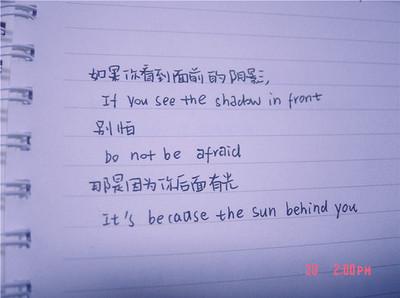 如果你看到面前的阴影,
If you see the shadow in front
别怕
Do not be afraid
那是因为你后面有光
It's because the sun behind you
20 2:00PM